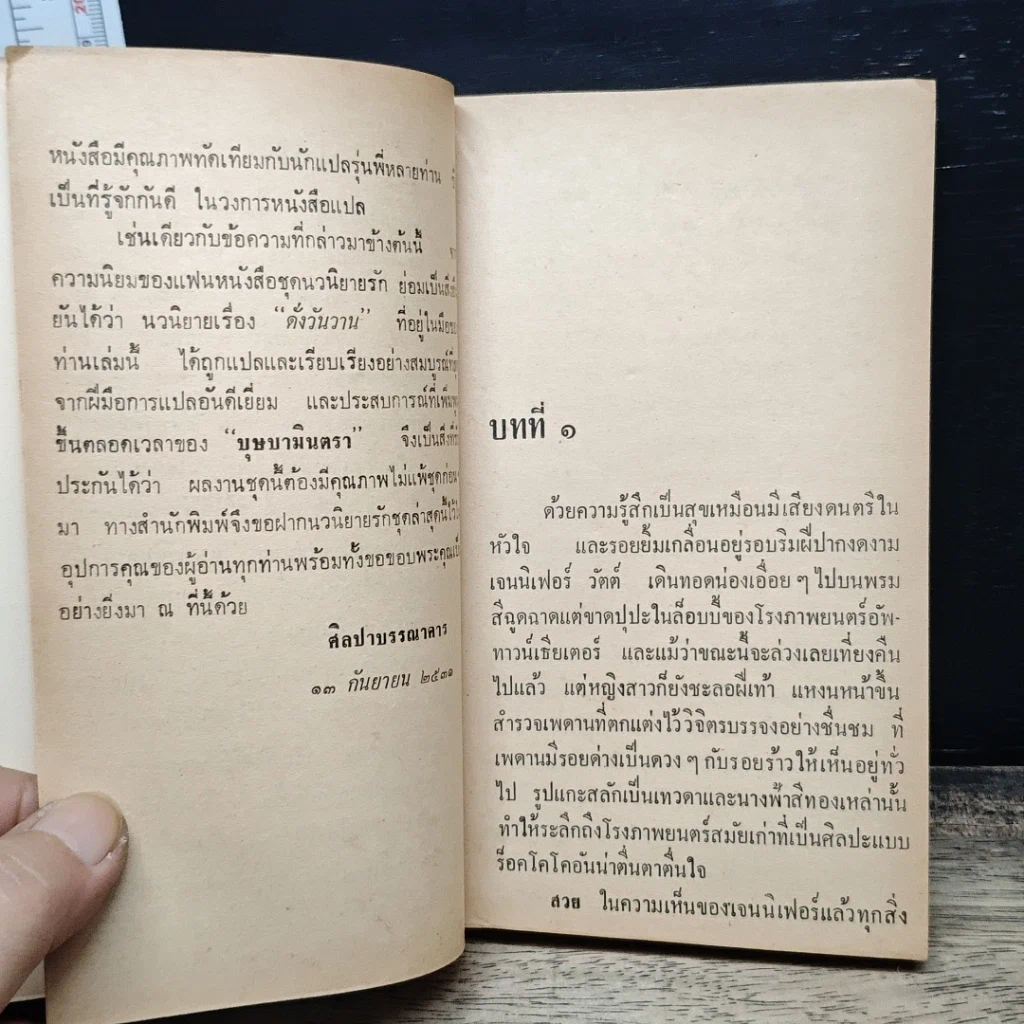 หนังสือมีคุณภาพทัดเทียมกับนักแปลรุ่นพี่หลายท่าน
เป็นที่รู้จักกันดี ในวงการหนังสือแปล
เช่นเดียวกับข้อความที่กล่าวมาข้างต้นนี้
ความนิยมของแฟนหนังสือชุดนวนิยายรัก ย่อมเป็น
ยันได้ว่า นวนิยายเรื่อง “ดั่งวันวาน” ที่อยู่ในมือ
ท่านเล่มนี้ ได้ถูกแปลและเรียบเรียงอย่างสมบูรณ์
จากฝีมือการแปลอันดีเยี่ยม และประสบการณ์ที่
ขึ้นตลอดเวลาของ “บุษบามินตรา” จึงเป็น
ประกันได้ว่า ผลงานชุดนี้ต้องมีคุณภาพไม่แพ้ชุดก่อน
มา ทางสำนักพิมพ์จึงขอฝากนวนิยายรักชุดล่าสุดนี้
อุปการคุณของผู้อ่านทุกท่านพร้อมทั้งขอขอบพระคุณ
อย่างยิ่งมา ณ ที่นี้ด้วย
ศิลปาบรรณาคาร
๑๓ กันยายน ๒๕๓๑
บทที่ ๑
ด้วยความรู้สึกเป็นสุขเหมือนมีเสียงดนตรีใน
หัวใจ และรอยยิ้มเกลื่อนอยู่รอบริมฝีปากงดงาม
เจนนิเฟอร์ วัตต์ เดินทอดน่องเอื่อย ๆ ไปบนพรม
สีฉูดฉาดแต่ขาดปุปะในล็อบบี้ของโรงภาพยนตร์อัพ-
ทาวน์เธียเตอร์ และแม้ว่าขณะนี้จะล่วงเลยเที่ยงคืน
ไปแล้ว แต่หญิงสาวก็ยังชะลอฝีเท้า แหงนหน้าขึ้น
สำรวจเพดานที่ตกแต่งไว้วิจิตรบรรจงอย่างชื่นชม ที่
เพดานมีรอยด่างเป็นดวง ๆ กับรอยร้าวให้เห็นอยู่ทั่ว
ไป รูปแกะสลักเป็นเทวดาและนางฟ้าสีทองเหล่านั้น
ทำให้ระลึกถึงโรงภาพยนตร์สมัยเก่าที่เป็นศิลปะแบบ
ร็อคโคโคอันน่าตื่นตาตื่นใจ
สวย ในความเห็นของเจนนิเฟอร์แล้วทุกสิ่ง